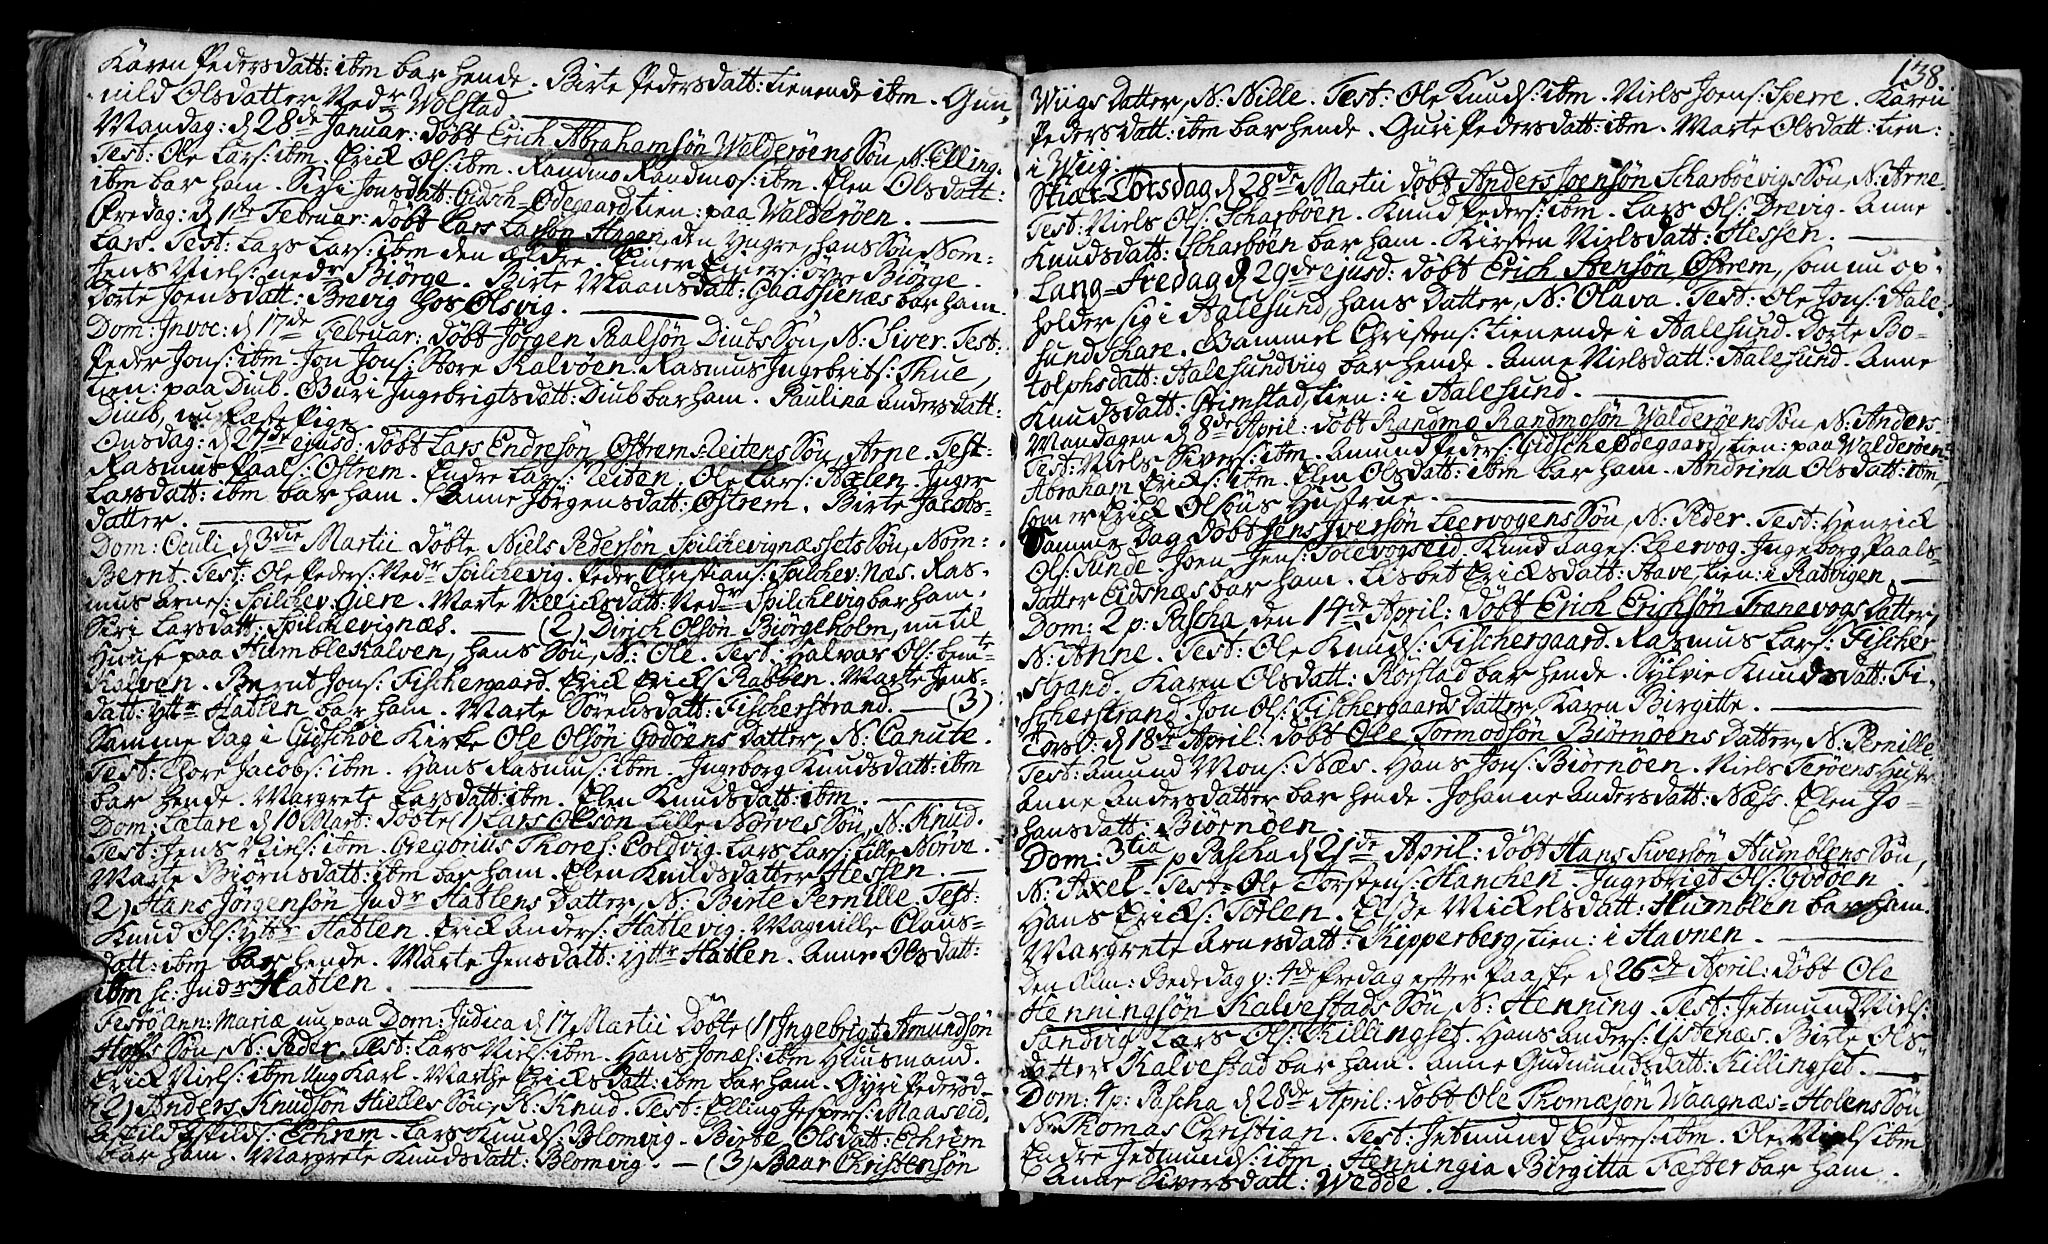 Karen Pedersdatt: ibm bar hende. Birte Pedersdatt: tienende ibm. Gun,
nild Olsdatter Nedr Wolstad
Mandag: d 28de Januar: döbt Erich Abrahamsön Walderöens Sön, N. Elling.
Test: Ole Lars: ibm. Erick Ols: ibm. Randmo Randmos: ibm. Elen Olsdatt:
ibm bar ham. Siri Jonsdatt: Gidsch=Ödegaard, tien: paa Walderöen.
Fredag: d 1ste Februar: döbt Lars Larsön Hagen den Yngre, hans Sön, Nom-
Lars. Test: Lars Lars: ibm den ældre. Einer Einers: Biörge.
Jens Niels: nedr Biörge. Birte Maansdatt: Gaassenæs bar ham.
Dorte Joensdatt: Brevig hos Olsvig.
Dom: Invoc: d 17de Februar: döbt Jörgen Paalsön Diubs Sön, N. Siver. Test:
Peder Jons: ibm. Jon Jons: Store Kalvöen. Rasmus Ingebrits: Thue,
tien: paa Diub. Guri Ingebrigtsdatt: Diub bar ham. Paulina Andersdatt:
Diub, nu fæste Pige
Onsdag: d 27de ejusd: döbt Lars Endresön Östrems-Leitens Sön, Arne. Test:
Rasmus Paals: Östrem. Endre Lars: Leiten. Ole Lars: Aælen. Inger
Larsdatt: ibm bar ham. Anne Jörgensdatt: Östrem. Birte Jacobs-
datter.
Dom: Oculi d 3die Martii döbte Niels Pedersön Spilchevignæssets Sön, Nom:
Bernt. Test: Ole Peders: Nedr Spilchevig. Peder Christians: Spilchev: Næs. Ras-
mus Arnes: Spilchev: Giere. Marte Ullricksdatt: Nedr Spilchevig bar ham.
Siri Larsdatt: Spilchevignæs. — (2) Dirich Olsön Biörgeholm, nu til
Huuse paa Humblekalven, hans Sön, N. Ole. Test: Halvar Ols: bemte
Kalven. Bernt Jons: Fischergaard. Erick Ericks: Rabben. Marte Jens-
datt: Yttr Hatlen bar ham. Marte Sörensdatt: Fischerstrand. — (3)
Samme Dag i Gidschöe Kirke Ole Olsön Godöens Datter, N. Canute.
Test: Thore Jacobs: ibm. Hans Rasmus: ibm. Ingeborg Knudsdatt: ibm
bar hende. Margrete Larsdatt: ibm. Elen Knudsdatt: ibm.
Dom: Lætare d 10 Mart: döbte (1) Lars Olsön Lille Nörves Sön, N. Knud.
Test: Jens Niels: ibm. Gregorius Thores: Coldvig. Lars Lars: Lille Nörve.
Marte Biörnsdatt: ibm bar ham. Elen Knudsdatter Hessen.
2) Hans Jörgensön Indr Hatlens Datter, N. Birte Pernille. Test:
Knud Ols: Yttr Hatlen. Erick Anders: Hatlevig. Magnille Claus-
datt: ibm bar hende. Marte Jensdatt: Yttr Hatlen. Anne Olsdatt:
ibm sc: Indr Hatlen.
Festo Ann: Mariæ nu paa Dom: Judica d 17 Martii döbte (1) Ingebrigt Amundsön
Hoffs Sön, N. Peder. Test: Lars Niels: ibm. Hans Jonæs: ibm Huusmand.
Erick Niels: ibm Ung Karl. Marthe Ericksdatt: ibm bar ham. Gyri Pedersd-
(2) Anders Knudsön Hielles Sön, N. Knud. Test: Elling Jespers: Maaseid,
Eskild Eskilds: Echrem. Lars Knuds: Blomvig. Birte Olsdatt: Echrem
bar ham. Margrete Knudsdatt: Blomvig. — (3) Baar Christensön
138.
Wiigs Datter, N. Nille. Test: Ole Knuds: ibm. Niels Joens: Sperre. Karen
Pedersdatt: ibm bar hende. Guri Pedersdatt: ibm. Marte Olsdatt: tien:
i Wiig.
Skiær-Torsdag d 28de Martii döbt Anders Joensön Scharböevigs Sön, N. Arne.
Test: Niels Ols: Scharböen. Knud Peders: ibm. Lars Ols: Brevig. Anne
Knudsdatt: Scharböen bar ham. Kirsten Nielsdatt: Hessen.
Lang=Fredag d 29de ejusd: döbt Erich Stensön Östrem, som nu op-
holder sig i Aalesund, hans Datter, N: Olava. Test: Ole Jons: Aale-
sundskare. Gammel Christens: tienende i Aalesund. Dorte Bo-
tolphsdatt: Aalesundviig bar hende. Anne Nielsdatt: Aalesund. Anne
Knudsdatt: Grimstad, tien: i Aalesund.
Mandagen d 8de April: döbt Randmo Randmosön Walderöens Sön, N: Anders.
Test: Niels Sivers: ibm. Amund Peders: Gidsche Ödegaard, tien: paa Walderöen.
Abraham Ericks: ibm. Elen Olsdatt: ibm bar ham. Andrina Olsdatt: ibm,
som er Erick Olsöns Hustrue.
Samme Dag döbt Jens Iversön Leervogens Sön, N: Peder. Test: Henrick
Ols: Sunde. Joen Jens: Solevogseid. Knud Lages: Leervog. Ingeborg Paals-
datter Eidsnæs bar ham. Lisbet Ericksdatt: Aave, tien: i Ratvigen.
Dom: 2 p: Pascha den 14de April: döbt Erich Erichsön Tranevogs Datter,
N. Anne. Test: Ole Knuds: Fischergaard. Rasmus Lars: Fischer
strand. Karen Olsdatt: Rörstad bar hende. Sylvie Knudsdatt: Fi-
scherstrand. Jon Ols: Fischergaards Datter Karen Birgitte.
Torsd: d 18de April: döbt Ole Tormodsön Biörnöens Datter, N. Pernille.
Test: Amund Mons: Næs. Hans Jons: Biörnöen. Niels Teröens Hustr:
Anne Andersdatter bar hende. Johanne Andersdatt: Næss. Elen Jo-
hansdatt: Biörnöen.
Dom: 3tia p Pascha d 21de April: döbt Hans Siversön Humblens Sön,
N. Axel. Test: Ole Torstens: Hanchen. Ingebrigt Ols: Godöen
Hans Ericks: Tötlen. Eidsse Mickelsdatt: Humblen bar ham.
Margrete Arnesdatt: Kipperberg, tien: i Havnen.
Den Alm: Bededag p: 4de Fredag efter Paaske d 26de April: döbt Ole
Henningsön Kalvestads Sön, N. Henning. Test: Jetmund Niels:
Sandvig. Lars Ols: Killingset. Hans Anders: Ystenæs. Birte Ols-
datter Kalvestad bar ham. Anne Gudmundsdatt: Killingset.
Dom: 4 p: Pascha d 28de April: döbt Ole Thomæsön Waagnæs=Holens Sön
N. Thomas Christian. Test: Jetmund Endres: ibm. Ole Niels: ibm
Endre Jetmunds: ibm. Henningia Birgitta Fæster bar ham.
Anne Siversdatt: Wedde.